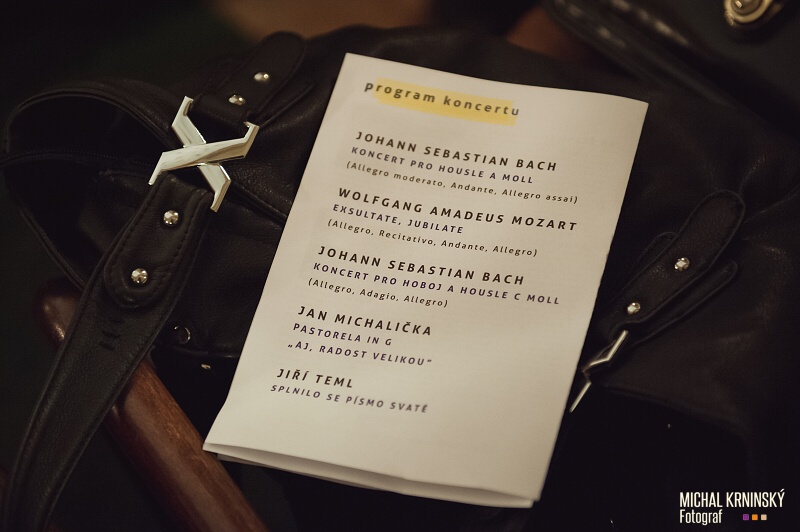 program koncertu
JOHANN SEBASTIAN BACH
KONCERT PRO HOUSLE A MOLL
(Allegro moderato, Andante, Allegro assai)
WOLFGANG AMADEUS MOZART
EXSULTATE, JUBILATE
(Allegro, Recitativo, Andante, Allegro)
JOHANN SEBASTIAN BACH
KONCERT PRO HOBOJ A HOUSLE C MOLL
(Allegro, Adagio, Allegro)
JAN MICHALIČKA
PASTORELA IN G
„AJ, RADOST VELIKOU“
JIŘÍ TEML
SPLNILO SE PÍSMO SVATÉ
MICHAL KRNINSKÝ
Fotograf